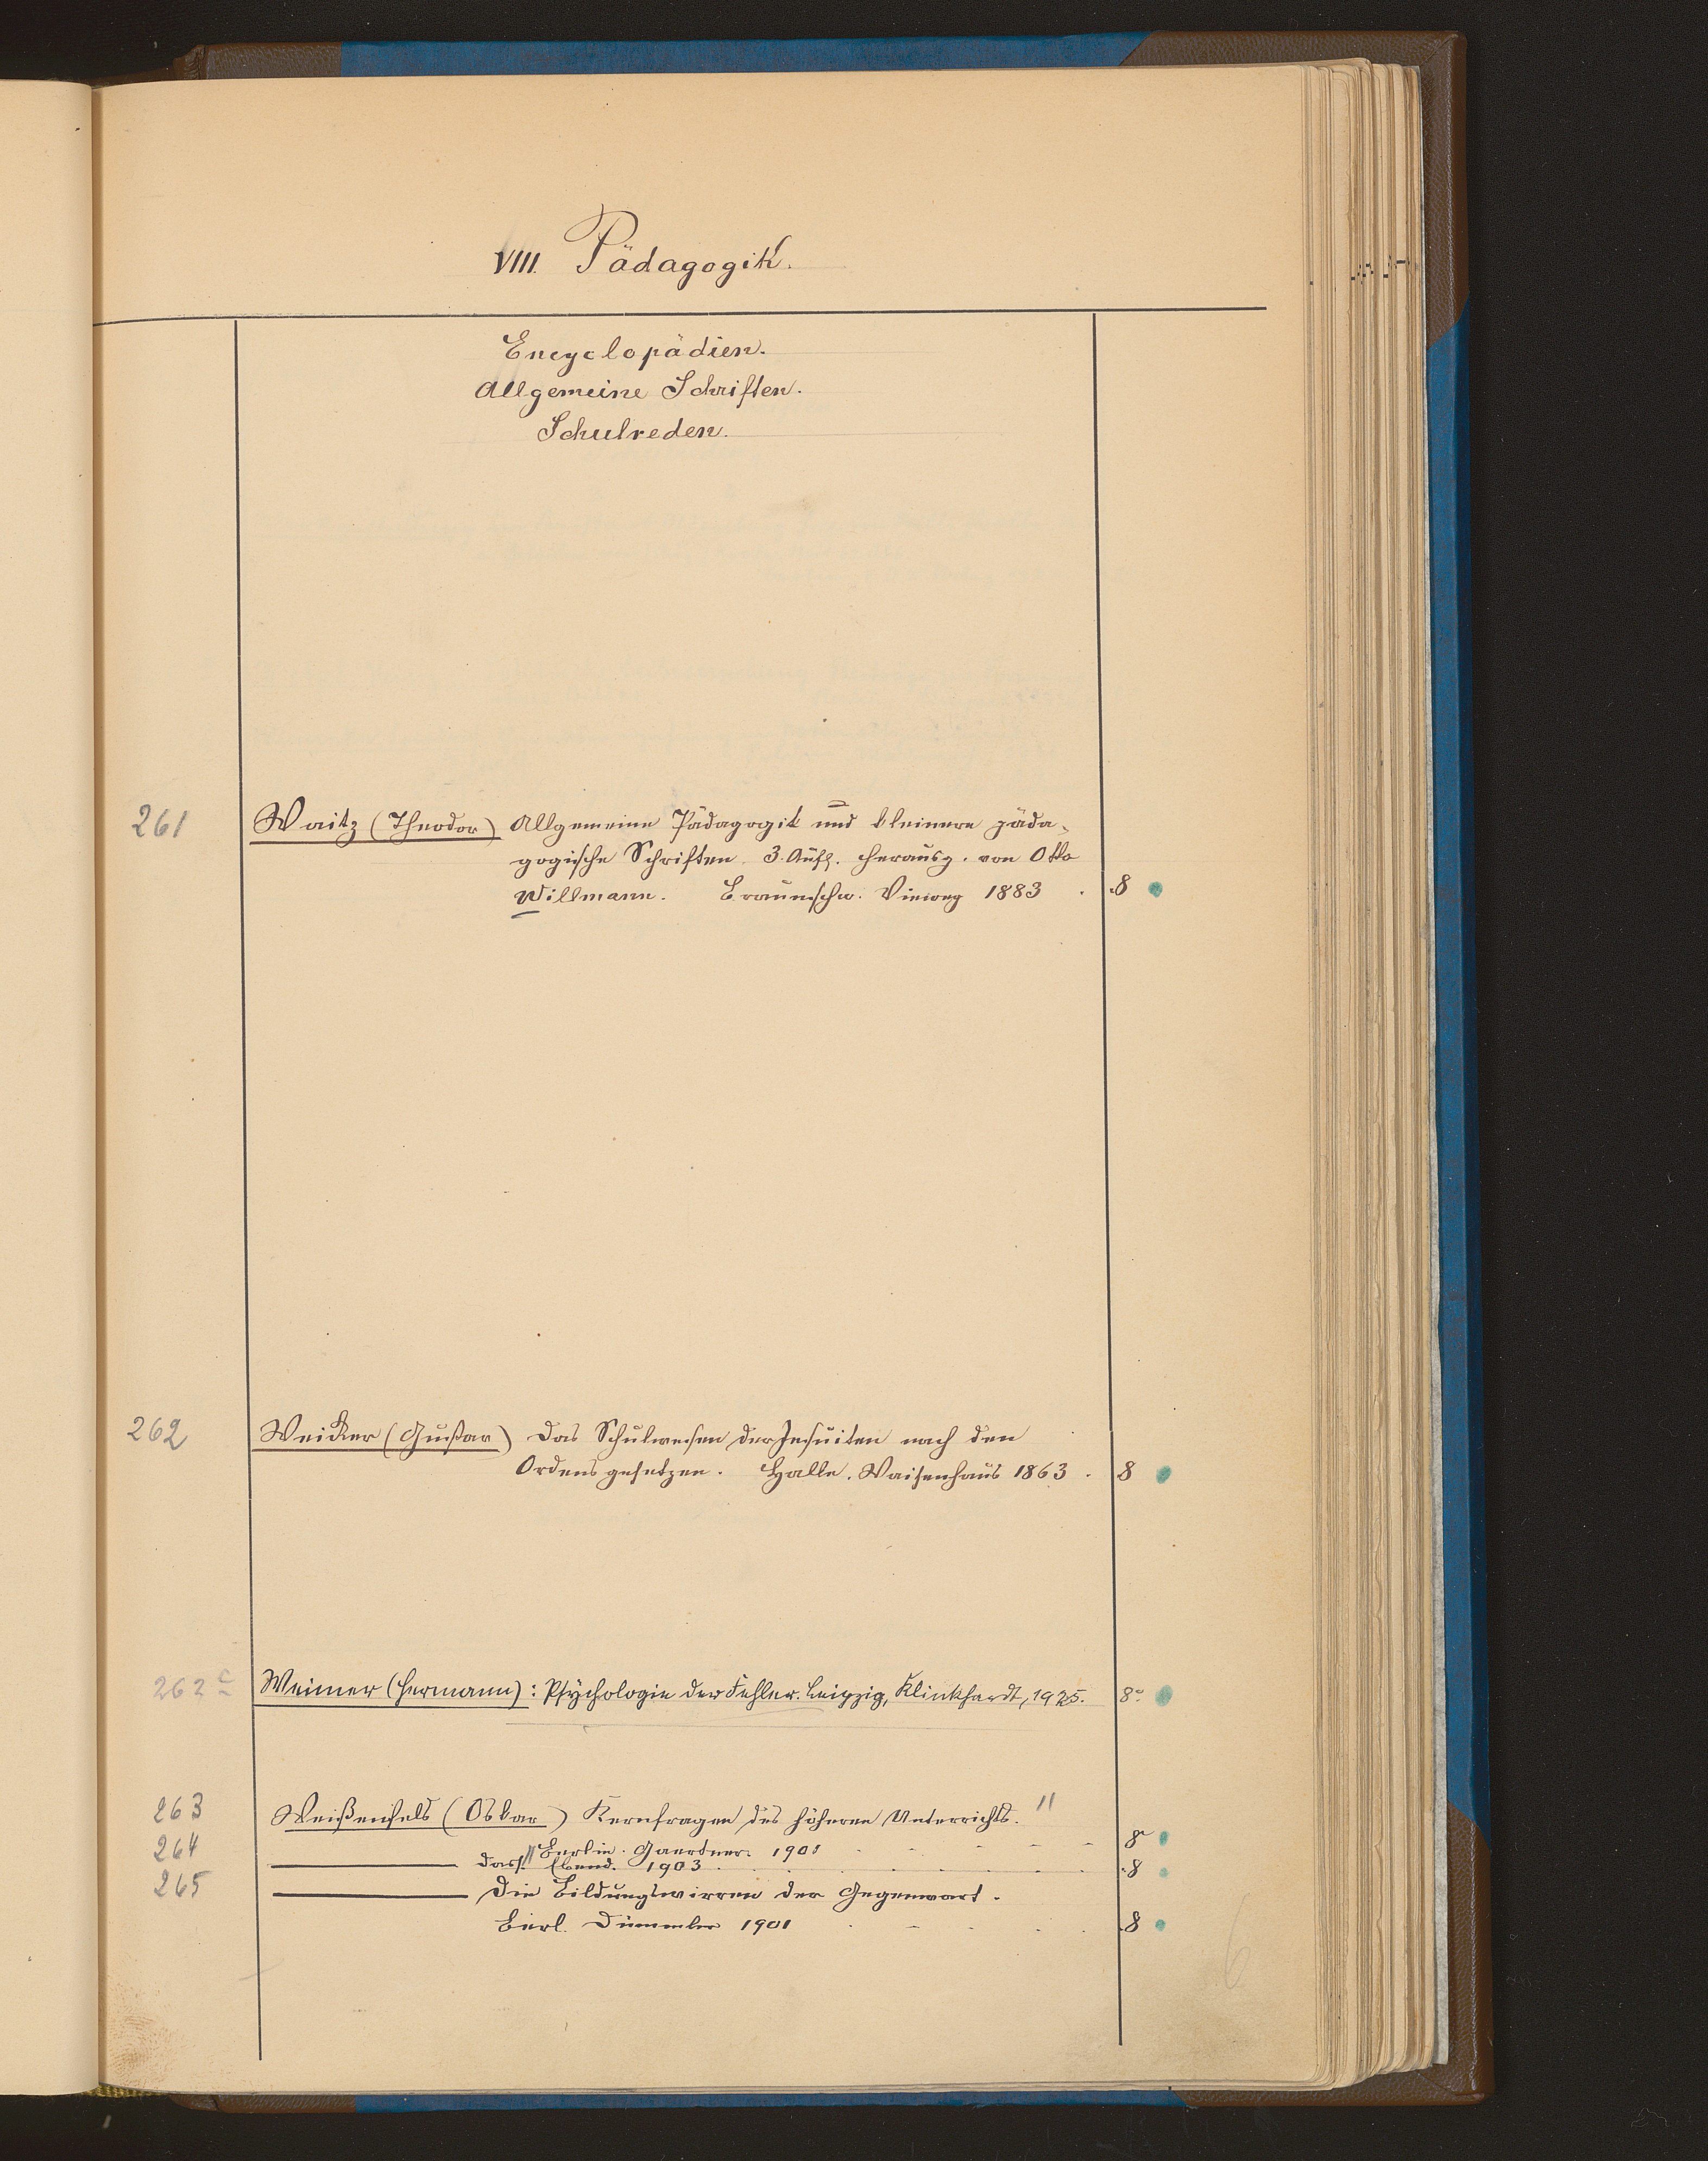 VIII. Pädagogik.
Encyclopädien.
Allgemeine Schriften.
Schulreden.
261 Waitz (Theodor) Allgemeine Pädagogik und kleinere päda-
gogische Schriften. 3. Aufl. herausg. von Otto
Willmann. Braunschw. Vieweg 1883 . 8
262 Weicker (Gustav) Das Schulwesen der Jesuiten nach den
Ordensgesetzen. Halle. Waisenhaus 1863 . 8
262 c Weimer (Hermann): Psychologie der Fehler. Leipzig, Klinkhardt, 1925. 8°
263 Weißenfels (Oskar) Kernfragen des höheren Unterrichts. "
264 " Berlin. Gaertner. 1901 8°
dass. Ebend. 1903 8
265 Die Bildungswirren der Gegenwart.
Berl. Dümmler 1901 8
6